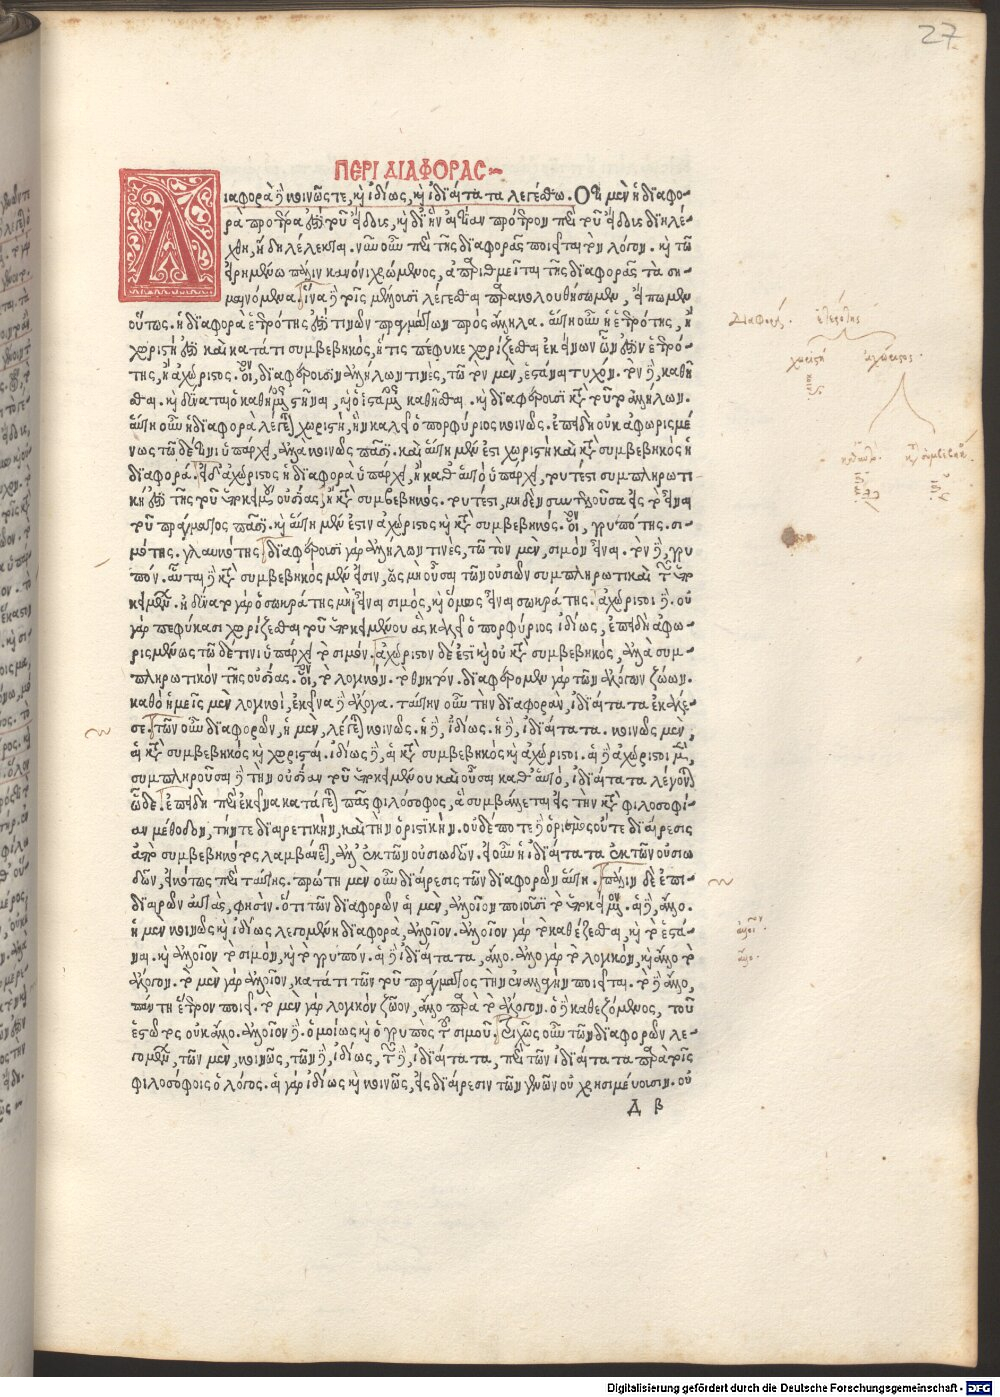 27
ΠΕΡΙ ΔΙΑΦΟΡΑΣ
Διαφορὰ δὲ κοινῶς τε, καὶ ἰδίως, καὶ ἰδιαίτατα λεγέσθω. Ὅτι μὲν ἡ διαφο-
ρὰ προτέρα ἐστὶ τοῦ εἴδους, καὶ δι' ἣν αἰτίαν πρότερον περὶ τοῦ εἴδους διηλέ-
χθη, ἤδη λέλεκται. νῦν οὖν περὶ τῆς διαφορᾶς ποιεῖται τὸν λόγον. καὶ τῷ
εἰρημένῳ πάλιν κανόνι χρώμενος, ἀπαριθμεῖται τῆς διαφορᾶς τὰ ση-
μαινόμενα. ἵνα δὲ τοῖς μέλλουσι λέγεσθαι παρακολουθήσωμεν, εἴπωμεν
οὕτως. ἡ διαφορὰ ἑτερότης ἐστὶ τινῶν πραγμάτων πρὸς ἄλληλα. αὕτη οὖν ἡ ἑτερότης, ἢ
χωριστὴ ἐστὶ καὶ κατά τι συμβεβηκός, ἥτις πέφυκε χωρίζεσθαι ἐκείνων ὧν ἐστιν ἑτερό-
της, ἢ ἀχώριστος. οἷον, διαφέρουσιν ἀλλήλων τινὲς, τῷ τὸν μὲν, ἑστάναι τυχὸν. τὸν δὲ, καθῆ-
σθαι. καὶ δύναται ὁ καθήμενος στῆναι, καὶ ὁ ἑστάμενος καθῆσθαι. καὶ διαφέρουσι κατὰ τοῦτο ἀλλήλων.
αὕτη οὖν ἡ διαφορὰ λέγεται χωριστὴ, ἣν καλεῖ ὁ πορφύριος κοινῶς. ἐπειδὴ οὐκ ἀφωρισμέ-
νως τῷδέ τινι ὑπάρχει, ἀλλὰ κοινῶς πᾶσι. καὶ αὕτη μέν ἐστι χωριστὴ καὶ κατὰ συμβεβηκὸς ἡ
διαφορά. εἰ δ' ἀχώριστος ἡ διαφορὰ ὑπάρχει, ἢ καθ' αὑτὸ ὑπάρχει, τουτέστι συμπληρωτι-
κή ἐστι τῆς τοῦ ὑποκειμένου οὐσίας, ἢ κατὰ συμβεβηκός. τουτέστι, μηδὲν συντελοῦσα εἰς τὸ εἶναι
τοῦ πράγματος πᾶσι. καὶ αὕτη μέν ἐστιν ἀχώριστος καὶ κατὰ συμβεβηκός. οἷον, γρυπότης. σι-
μότης. γλαυκότης. διαφέρουσι γὰρ ἀλλήλων τινὲς, τῷ τὸν μὲν, σιμὸν εἶναι. τὸν δὲ, γρυ-
πόν. αὗται δὲ κατὰ συμβεβηκὸς μέν εἰσιν, ὡς μὴ οὖσαι τῶν οὐσιῶν συμπληρωτικαὶ τῶν ὑπο-
κειμένων. ἠδύνατο γὰρ ὁ σωκράτης μὴ εἶναι σιμὸς, καὶ ὅμως εἶναι σωκράτης. ἀχώριστοι δὲ. οὐ
γὰρ πεφύκασι χωρίζεσθαι τοῦ ὑποκειμένου ἃς καλεῖ ὁ πορφύριος ἰδίως, ἐπειδὴ ἀφω-
ρισμένως τῷδέ τινι ὑπάρχει τὸ σιμὸν. ἀχώριστον δέ ἐστι καὶ οὐ κατὰ συμβεβηκὸς, ἀλλὰ συμ-
πληρωτικὸν τῆς οὐσίας. οἷον, τὸ λογικὸν. τὸ θνητὸν. διαφέρομεν γὰρ τῶν ἀλόγων ζώων.
καθὸ ἡμεῖς μὲν λογικοὶ, ἐκεῖνα δὲ ἄλογα. ταύτην οὖν τὴν διαφορὰν, ἰδιαίτατα ἐκάλε-
σε. τῶν οὖν διαφορῶν, ἡ μὲν, λέγεται κοινῶς. ἡ δὲ, ἰδίως. ἡ δὲ, ἰδιαίτατα. κοινῶς μὲν,
αἱ κατὰ συμβεβηκὸς καὶ χωρισταί. ἰδίως δὲ, αἱ κατὰ συμβεβηκὸς καὶ ἀχώριστοι. αἱ δὲ ἀχώριστοι μὲν,
συμπληροῦσαι δὲ τὴν οὐσίαν τοῦ ὑποκειμένου καὶ οὖσαι καθ' αὑτὸ, ἰδιαίτατα λέγονται
ὧδε. ἐπειδὴ περὶ ἐκεῖνα καταγίνεται πᾶς φιλόσοφος, ἃ συμβάλλεται εἰς τὴν κατὰ φιλοσοφί-
αν μέθοδον, τήν τε διαιρετικὴν, καὶ τὴν ὁριστικήν. οὐδέποτε δὲ ὁρισμὸς οὔτε διαίρεσις
ἀπὸ συμβεβηκότος λαμβάνεται, ἀλλ' ἐκ τῶν οὐσιωδῶν. εἰ οὖν ἡ ἰδιαίτατα ἐκ τῶν οὐσιω
δῶν, εἰκότως περὶ ταύτης. πρώτη μὲν οὖν διαίρεσις τῶν διαφορῶν αὕτη. πάλιν δὲ ἐπι-
διαιρῶν αὐτὰς, φησὶν. ὅτι τῶν διαφορῶν αἱ μὲν, ἀλλοῖον ποιοῦσι τὸ ὑποκείμενον. αἱ δὲ, ἄλλο.
ἡ μὲν κοινῶς καὶ ἰδίως λεγομένη διαφορὰ, ἀλλοῖον. ἀλλοῖον γὰρ τὸ καθέζεσθαι, καὶ τὸ ἑστά-
ναι. καὶ ἀλλοῖον τὸ σιμὸν, καὶ τὸ γρυπὸν. αἱ δὲ ἰδιαίτατα, ἄλλο. ἄλλο γὰρ τὸ λογικὸν, καὶ ἄλλο τὸ
ἄλογον. τὸ μὲν γὰρ ἀλλοῖον, κατά τι τῶν τοῦ πράγματος τὴν ἐναλλαγὴν ποιεῖται. τὸ δὲ ἄλλο,
πάντη ἕτερον ποιεῖ. τὸ μὲν γὰρ λογικὸν ζῶον, ἄλλο παρὰ τὸ ἄλογον. ὁ δὲ καθεζόμενος, τοῦ
ἑστῶτος οὐκ ἄλλο. ἀλλοῖον δὲ. ὁμοίως καὶ ὁ γρυπὸς τοῦ σιμοῦ. τριχῶς οὖν τῶν διαφορῶν λε-
γομένων, τῶν μὲν, κοινῶς, τῶν δὲ, ἰδίως, τῶν δὲ, ἰδιαίτατα, περὶ τῶν ἰδιαίτατα παρὰ τοῖς
φιλοσόφοις ὁ λόγος. αἱ γὰρ ἰδίως καὶ κοινῶς, εἰς διαίρεσιν τῶν γενῶν οὐ χρησιμεύουσιν. οὐ
Δ β
Διαφορὰ. ἑτερότης
χωριστὴ ἀχώριστος.
Digitalisierung gefördert durch die Deutsche Forschungsgemeinschaft - DFG